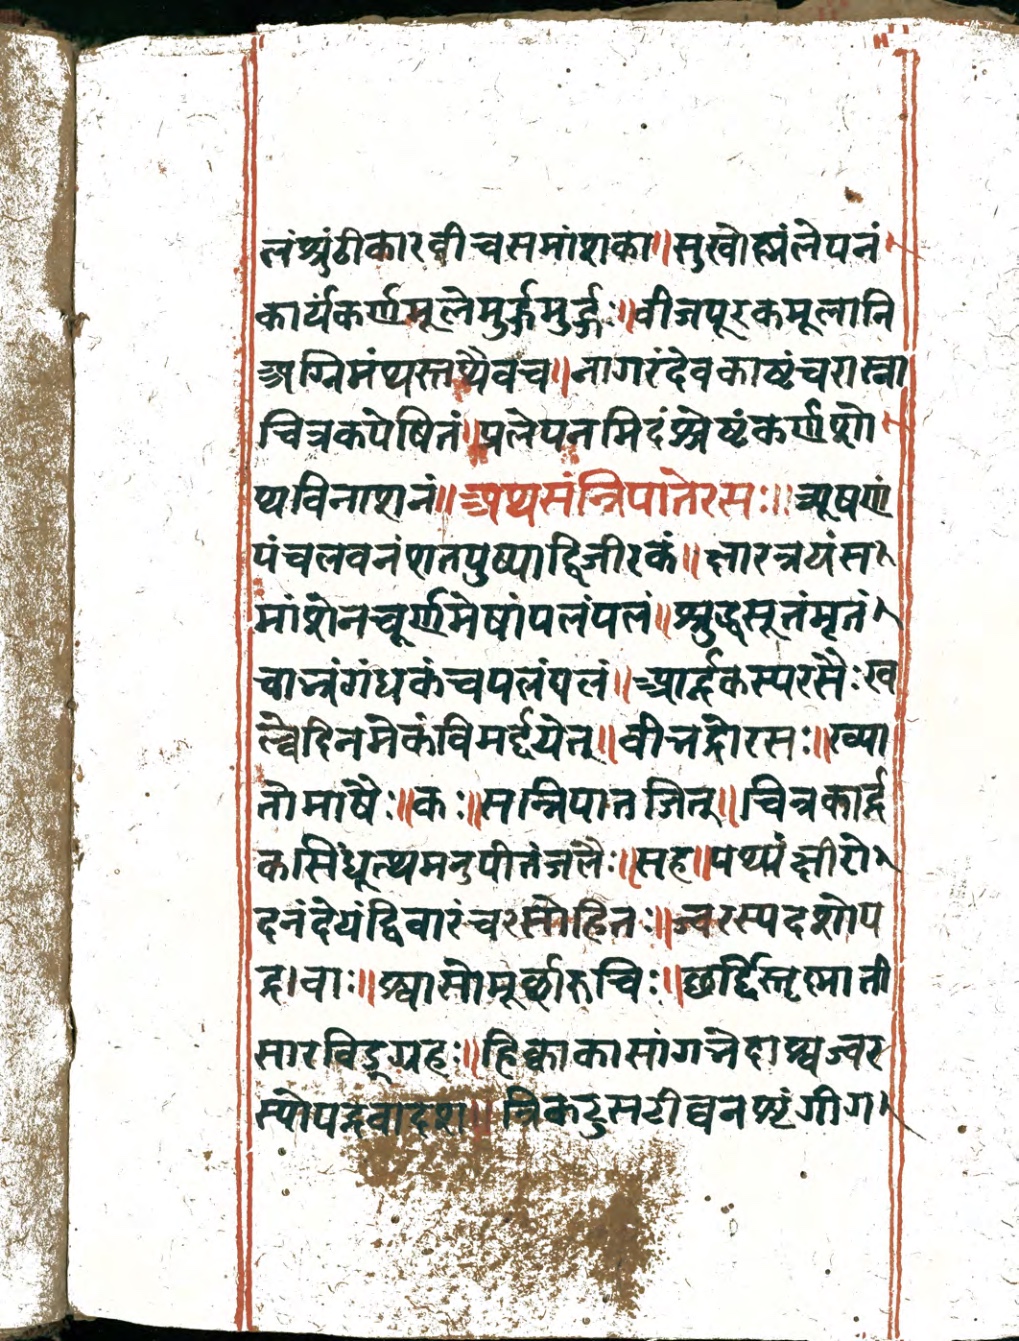 लंश्रुंठीकारवीचसमांशका॥सुखोष्णंलेपनं
कार्यंकर्णमूलेमुर्द्गमुर्द्गः॥वीजपूरकमूलानि
अग्निमंथस्तथैवच॥नागरंदेवकाष्टंचरास्ना
चित्रकपेषितं॥प्रलेपनमिदंश्रेष्टंकर्णशो
थविनाशनं॥अथसंन्निपातेरसः॥त्र्यूषणं
पंचलवनंशतपुष्पाद्विजीरकं॥क्षारत्रयंस
मांशेनचूर्णमेषांपलंपलं॥श्रुद्धसूतंमृतं
चाभ्रंगंधकंचपलंपलं॥आर्द्रकस्यरसैःख
ल्वेदिनमेकंविमर्द्दयेत्॥वीभद्रोरसः॥ख्या
तोमाषैः॥कः॥सन्निपातजित्॥चित्रकार्द्र
कसिंधूत्थमनुपीतंजलैः॥सह॥पथ्यंक्षीरो
दनंदेयंद्विवारंचरसोहितः॥ज्वरस्यदशोप
द्रावाः॥श्वासोमूर्छारुचिः॥छर्द्दिस्तृष्माती
सारविड्ग्रहः॥हिक्काकासांगभेदाश्चज्वर
स्योपद्रवादश॥त्रिकटुसटीघनशृंगीग